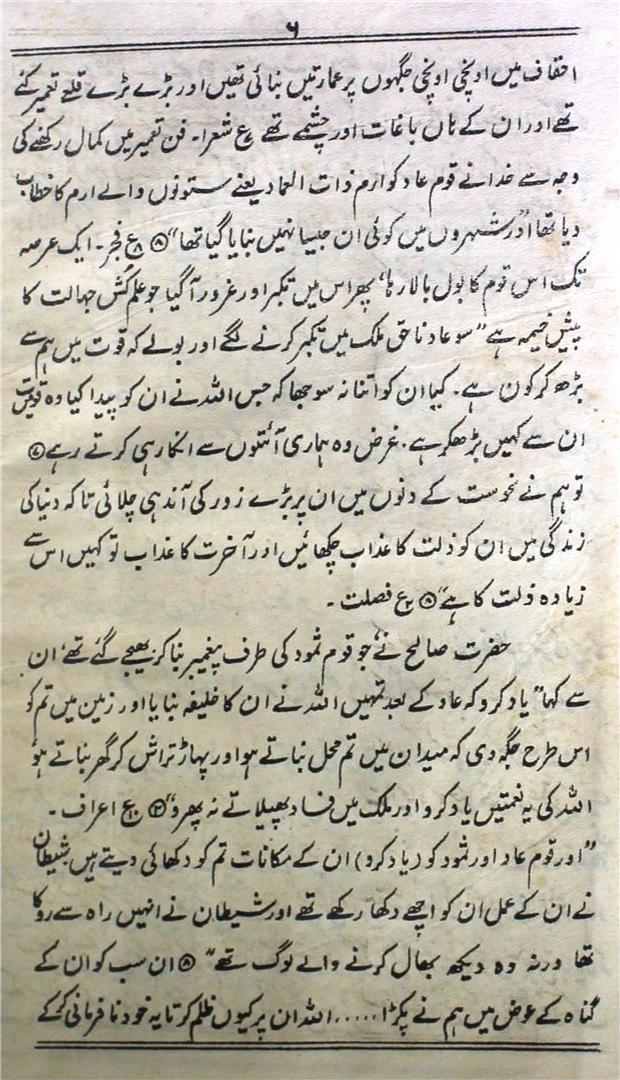 ۶
احقاف میں اونچی اونچی جگہوں پر عمارتیں بنائی تھیں اور بڑے بڑے قلعے تعمیر کئے
تھے اور ان کے ہاں باغات اور چشمے تھے ع شعرا۔ فن تعمیر میں کمال رکھنے کی
وجہ سے خدا نے قوم عاد کو ارم ذات العماد یعنے ستونوں والے ارم کا خطاب
دیا تھا اور "شہروں میں کوئی ان جیسا نہیں بنایا گیا تھا" ۸ ع فجر۔ ایک عرصہ
تک اس قوم کا بول بالا رہا، پھر اس میں تکبر اور غرور آگیا جو علم کُش جہالت کا
پیش خیمہ ہے "سو عاد ناحق ملک میں تکبر کرنے لگے اور بولے کہ قوت میں ہم سے
بڑھ کر کون ہے۔ کیا ان کو اتنا نہ سوجھا کہ جس اللہ نے ان کو پیدا کیا وہ قوت میں
ان سے کہیں بڑھکر ہے۔ غرض وہ ہماری آئتوں سے انکار ہی کرتے رہے
تو ہم نے نحوست کے دنوں میں ان پر بڑے زور کی آندہی چلائی تاکہ دنیا کی
زندگی میں ان کو ذلت کا عذاب چکھائیں اور آخرت کا عذاب تو کہیں اس سے
زیادہ ذلت کا ہے" ع فصلت ۔
حضرت صالح نے جو قوم ثمود کی طرف پیغمبر بنا کر بھیجے گئے تھے ان
سے کہا "یاد کرو کہ عاد کے بعد تمہیں اللہ نے ان کا خلیفہ بنایا اور زمین میں تم کو
اس طرح جگہ دی کہ میدان میں تم محل بناتے ہو اور پہاڑ تراش کر گھر بناتے ہو
اللہ کی یہ نعمتیں یاد کرو اور ملک میں فساد پھیلاتے نہ پھرو" ع اعراف ۔
"اور قوم عاد اور ثمود کو (یاد کرو) ان کے مکانات تم کو دکھائی دیتے ہیں شیطان
نے ان کے عمل ان کو اچھے دکھا رکھے تھے اور شیطان نے انہیں راہ سے روکا
تھا ورنہ وہ دیکھ بھال کرنے والے لوگ تھے" ان سب کو ان کے
گناہ کے عوض میں ہم نے پکڑا ..... اللہ ان پر کیوں ظلم کرتا یہ خود نافرمانی کر کے